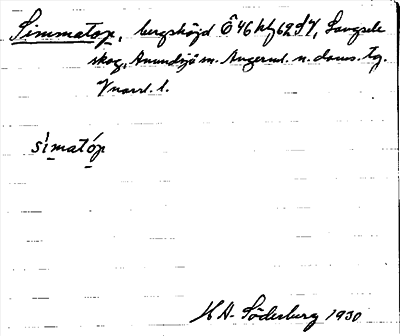 Simmatop, bergshöjd Ö46 hf 62 SV, Långsele
skog, Anundsjö sn. Ångerml. n. doms. tg.
V norrl. l.
simatóp
K A- Söderburg 1930